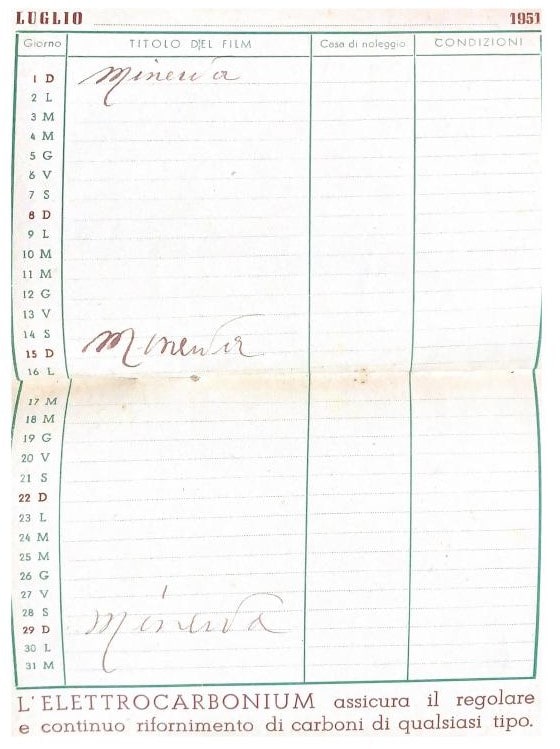 LUGLIO 1951
Giorno TITOLO DEL FILM Casa di noleggio CONDIZIONI
1 D Minerva
2 L
3 M
4 M
5 G
6 V
7 S
8 D
9 L
10 M
11 M
12 G
13 V
14 S
15 D Minerva
16 L
17 M
18 M
19 G
20 V
21 S
22 D
23 L
24 M
25 M
26 G
27 V
28 S
29 D Minerva
30 L
31 M
L'ELETTROCARBONIUM assicura il regolare
e continuo rifornimento di carboni di qualsiasi tipo.